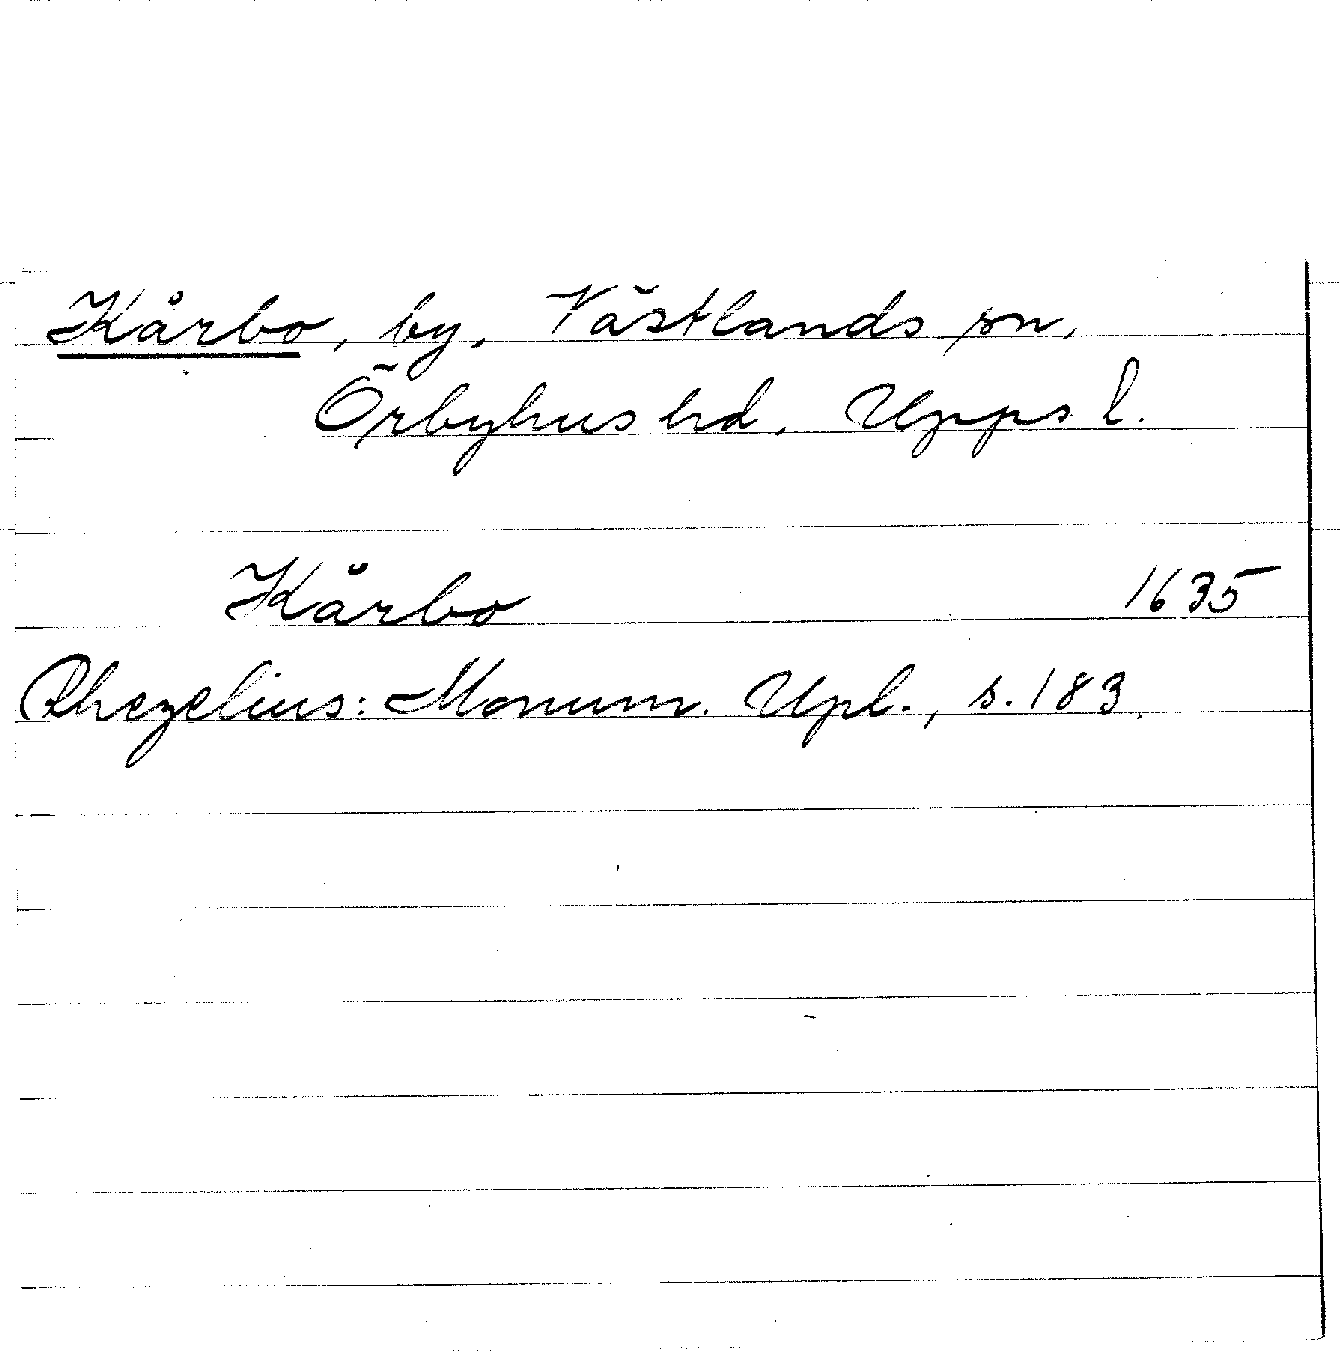 Kårbo, by, Västlands sn,
Örbyhus hd. Upps l.
Kårbo 1635
Rhezelius: Monum. Upl., s. 183.